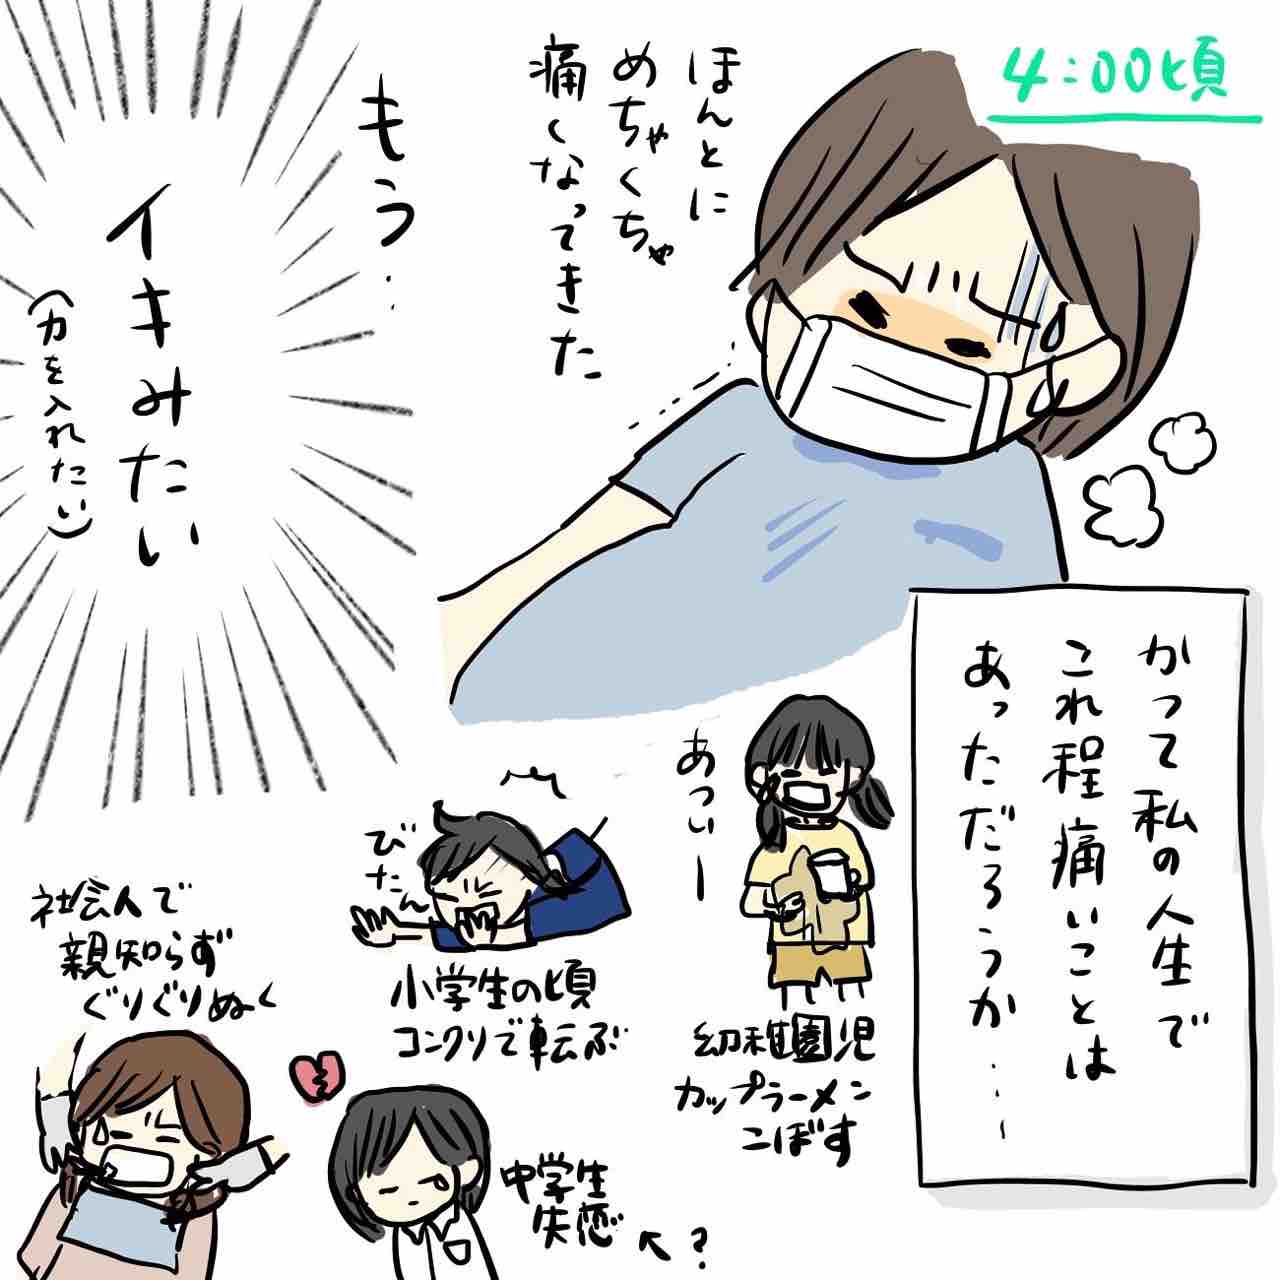 4:00頃
ほんとに
めちゃくちゃ
痛くなってきた
もう‥
イキみたい
(力を入れたい)
かつて私の人生で
これ程痛いことは
あっただろうか‥‥
あつぃー
幼稚園児
カップラーメン
こぼす
びたん
小学生の頃
コンクリで転ぶ
中学生
失恋
←?
社会人で
親知らず
ぐりぐりぬく